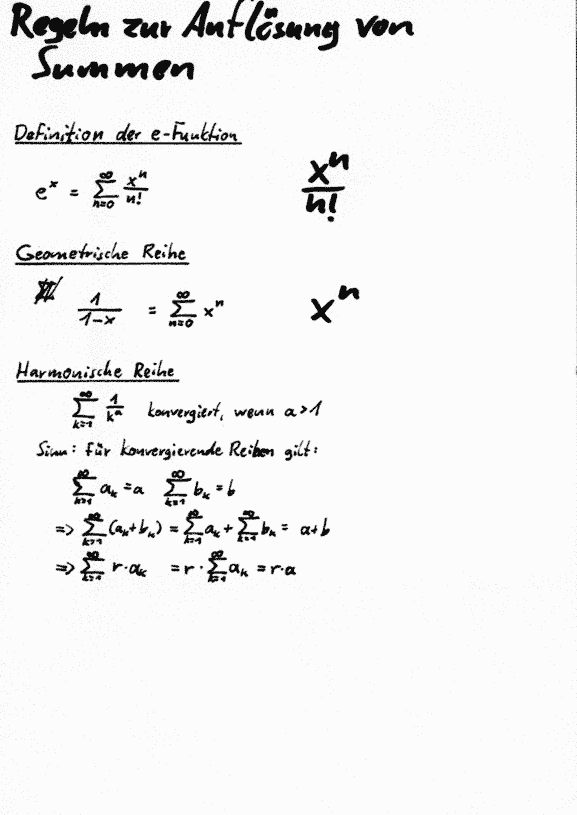 Regeln zur Auflösung von
Summen
Definition der e-Funktion
e^x = ∑_{n=0}^{∞} x^n/n!
x^n/n!
Geometrische Reihe
1/(1-x) = ∑_{n=0}^{∞} x^n
x^n
Harmonische Reihe
∑_{k=1}^{∞} 1/k^a konvergiert, wenn a>1
für konvergierende Reihen gilt:
∑_{k=1}^{∞} a_k = a ∑_{k=1}^{∞} b_k = b
=> ∑_{k=1}^{∞} (a_k+b_k) = ∑_{k=1}^{∞} a_k + ∑_{k=1}^{∞} b_k = a+b
=> ∑_{k=1}^{∞} r·a_k = r · ∑_{k=1}^{∞} a_k = r·a